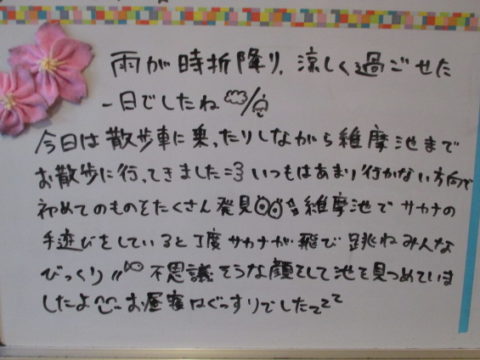 雨が時折降り、涼しく過ごせた
一日でしたね
今日は散歩車に乗ったりしながら維摩池まで
お散歩に行ってきました=3 いつもはあまり行かない方向で
初めてのものをたくさん発見 維摩池でサカナの
手遊びをしていると丁度サカナが飛び跳ねみんな
びっくり!! 不思議そうな顔をして池を見つめていま
したよ お昼寝はぐっすりでしたzzz